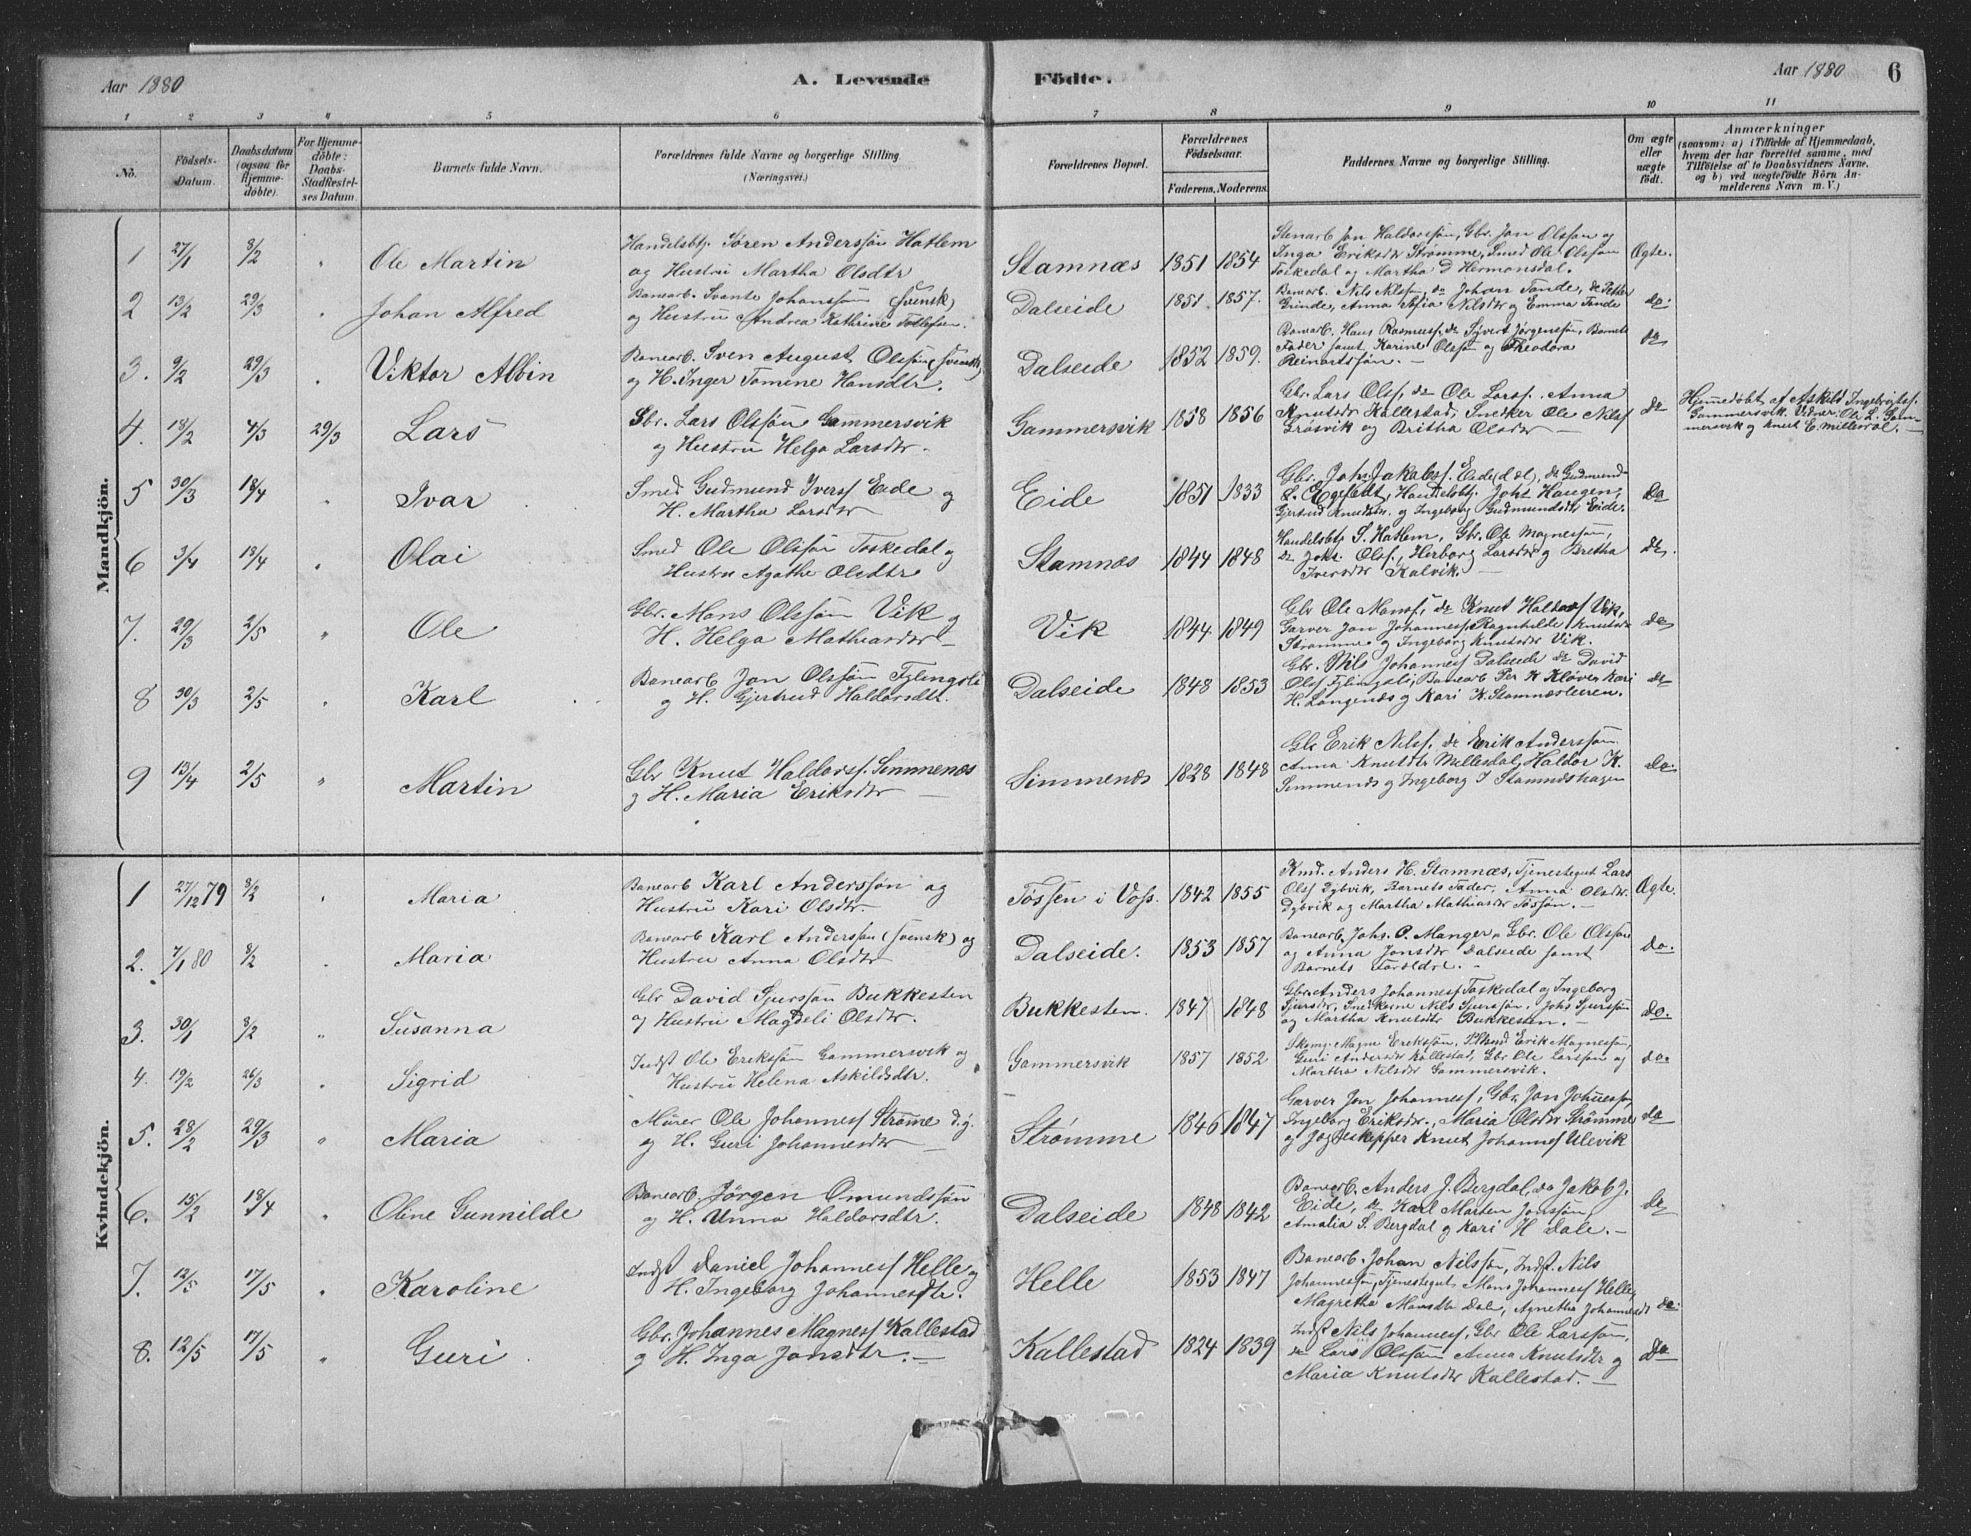 Aar 1880
A. Levende Födte.
Aar 1880 6
1 2 3 4 5 6 7 8 9 10 11
No.
Födsels-Datum.
Daabsdatum (ogsaa for Hjemmedöbte).
For Hjemmedöbte: Daabs-Stadfæstelses Datum.
Barnets fulde Navn.
Forældrenes fulde Navne og borgerlige Stilling. (Næringsvei.)
Forældrenes Bopæl.
Forældrenes Födselsaar.
Faderens. Moderens.
Faddernes Navne og borgerlige Stilling.
Om ægte eller uægte födt.
Anmærkninger
(saasom: a) i Tilfælde af Hjemmedaab, hvem der har forrettet samme, med Tilföielse af to Daabsvidners Navne, og b) ved uægtefödte Börn Anmelderens Navn m. V.)
Mandkjön.
1 27/1 8/2 " Ole Martin
Handelsbtj. Søren Anderssøn Hatlem
og Hustru Martha Olsdtr
Stamnæs 1851 1854
Stenarb Jon Haldorssøn, Gbr. Jon Olssøn og
Inga Eriksdr Strømme, Smed Ole Olssøn
Toskedal og Martha D Hermansdal.
Ægte.
2 13/2 29/3 " Johan Alfred
Banearb. Svante Johanssøn (svensk)
og Hustru Andrea Kathrine Tollefsen.
Dalseide 1851 1857.
Banearb. Nils Nilssøn, do Johan Tande, do Petter
Grinde, Anna Sofia Nilsdr og Emma Tande
do.
3. 9/2 29/3 " Viktor Albin
Banearb. Sven August Olssøn (svensk)
og H. Inger Tomine Hansdtr.
Dalseide 1852 1859.
Banearb. Hans Rasmuss. do Syvert Jørgenssøn, Barnets
Fader samt Karine Olssøn og Theodora
Reinartssøn. —
do
4. 18/2 4/3 29/3 Lars
Gbr. Lars Olssøn Gammersvik
og Hustru Helga Larsdtr.
Gammersvik 1858 1856
Gbr. Lars Olss, do Ole Larss. Anna
Knutsdr Kallestad, Snedker Ole Nilss
Grøsvik og Britha Olsdtr —
do
Hjemmedøbt af Askild Ingebrigts.
Gammersvik. Vidner: Ole L. Gammersvik og Knut E. Millesdal. —
5 30/3 18/4 " Ivar
Smed Gudmund Iverss Eide og
H. Martha Larsdtr
Eide 1851 1833
Gbr. Johs. Jakobss. Eide
Handelsbtj. Johs Haugen,
Gjertrud Knutsdr. og Ingeborg Gudmundsdtr Eide.
do
6 3/4 18/4 " Olai
Smed Ole Olssøn Toskedal og
Hustru Agathe Olsdtr
Stamnæs 1844 1848
Handelsbtj. S. Hatlem, Gbr. Ole Magnessøn,
do Johs. Olss., Herborg Larsdtr og Bretha
Iversdtr Kalvik. —
do.
7. 29/3 2/5 " Ole
Gbr. Mons Olssøn Vik og
H. Helga Mathiasdtr —
Vik 1844 1849
Gbr Ole Monss, do Knut Haldorss Vik,
Garver Jon Johanness, Ragnhilda Knutsdr
Strømme og Ingeborg Knutsdtr Vik.
do
8 30/3 2/5 " Karl
Banearb Jon Olssøn Fylingsli
og H. Gjertrud Haldorsdtr.
Dalseide 1848 1853
Gbr. Nils Johanness Dalseide do David
Olss Fylingsli, Banearb Per K Kløve, Kari
H. Langenæs og Kari K. Stamnæsleeren.
do
9 13/4 2/5 " Martin
Gbr Knut Haldorss. Simmenæs
og H. Maria Eriksdtr —
Simmenæs 1828 1848
Gbr Erik Nilss, do Erik Anderssøn
Anna Knutsdtr Millesdal, Haldor K.
Simmenæs og Ingeborg J Stamnæshagen
do.
Kvindekjön.
1 27/12 79 8/2 " Maria
Banearb Karl Anderssøn og
Hustru Kari Olsdtr.
Tøssen i Voss. 1842 1855
Kmd. Anders H. Stamnæs, Tjenestegut Lars
Olss Dybvik, Barnets Fader, Anna Olsdtr.
Dybvik og Martha Mathiasdtr Tøssøn. —
Ægte.
2. 7/1 80 8/2 " Maria
Banearb Karl Anderssøn (svensk) og
Hustru Anna Olsdtr
Dalseide. 1853 1857
Banearb. Johs. O. Manger, Gbr. Ole Olssøn
og Anna Jonsdtr Dalseide samt
Barnets Forældre. —
do.
3. 30/1 8/2 " Susanna
Gbr David Sjurssøn Bukkesten
og Hustru Magdeli Olsdtr.
Bukkesten. 1847 1848
Gbr. Anders Johanness Toskedal og Ingeborg
Sjursdr, Snedkerne Nils Sjurssøn, Johs Sjurssøn
og Martha Knutsdtr Bukkesten. —
do.
4. 19/2 26/3 " Sigrid
Indst Ole Erikssøn Gammersvik og
Hustru Helena Askildsdtr.
Gammersvik 1857 1852
Skomg. Magne Erikssøn, Erik Magnessøn,
Guri Andersdr Kallestad, Gbr Ole Larssøn og
Martha Nilsdtr Gammersvik.
do.
5. 28/2 29/3 " Maria
Murer Ole Johanness Strømme d.y.
og H. Guri Johannesdtr —
Strømme 1846 1847
Garver Jon Johanness, Gbr. Jon Johness,
Ingeborg Eriksdtr., Maria Olsdtr Strømme
og Jagteskipper Knut Johanness Ulevik
do
6. 15/2 18/4 " Oline Gunnilde
Banearb. Jørgen Omundssøn
og H. Unna Haldorsdtr.
Dalseide 1848 1842
Banearb. Anders J. Bergdal, do Jakob J.
Eide, do Karl Marten Jonssøn,
Amalia S. Bergdal og Kari H Dale. —
do
7. 12/5 17/5 " Karoline
Indst Daniel Johanness Helle og
H. Ingeborg Johannesdtr.
Helle 1853 1847
Banearb. Johan Nilssøn, Indst. Nils
Johannessøn, Tjenestegut Mons Johanness Helle,
Magretha Monsdtr Dale, Agnetha Johannesdt
do.
8. 12/5 17/5 " Guri
Gbr. Johannes Magness Kallestad
og H. Inga Jonsdtr. —
Kallestad 1824 1839
Indst Nils Johanness, Gbr Ole Larssøn,
do Lars Olssøn Anna Knutsdtr og
Maria Knutsdtr Kallestad. —
do